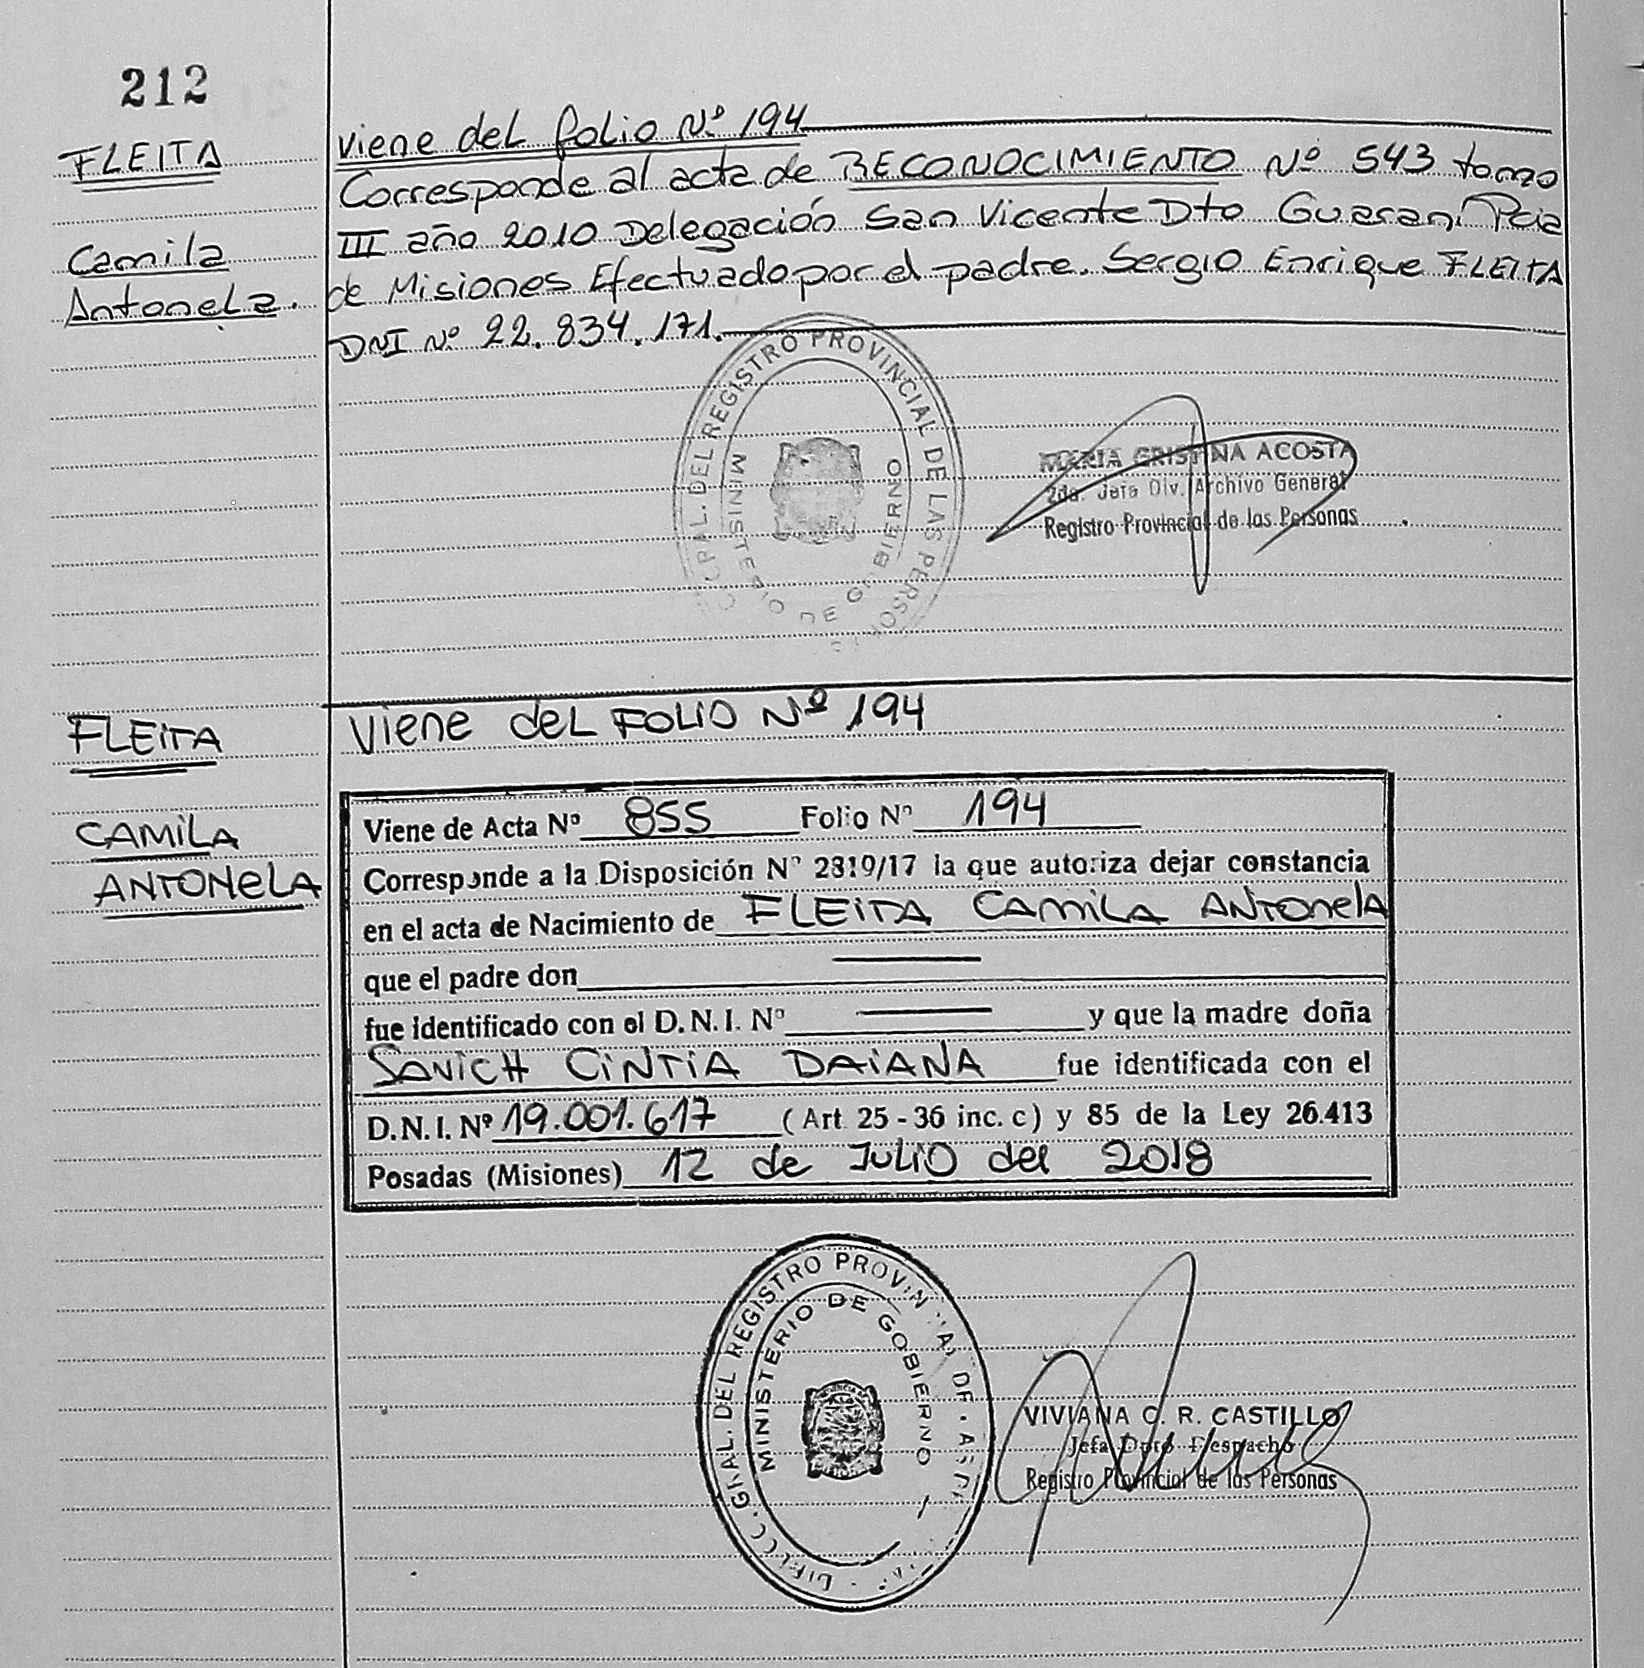 212
FLEITA
Camila
Antonela.
viene del folio Nº 194
Corresponde al acta de RECONOCIMIENTO Nº 543 tomo
III año 2010 Delegación San Vicente Dto Guaraní Pcia
de Misiones Efectuado por el padre. Sergio Enrique FLEITA
DNI Nº 22.834.171.
GRAL. DEL REGISTRO PROVINCIAL DE LAS PERSONAS
MINISTERIO DE GOBIERNO
MARIA CRISTINA ACOSTA
2da. Jefa Div. Archivo General
Registro Provincial de las Personas
FLEITA
CAMILA
ANTONELA
Viene del FOLIO Nº 194
Viene de Acta Nº 855 Folio Nº 194
Corresponde a la Disposición Nº 2819/17 la que autoriza dejar constancia
en el acta de Nacimiento de FLEITA CAMILA ANTONELA
que el padre don
fue identificado con el D.N.I. Nº y que la madre doña
SAVICH CINTIA DAIANA fue identificada con el
D.N.I. Nº 19.001.617 (Art 25 - 36 inc. c) y 85 de la Ley 26.413
Posadas (Misiones) 12 de JULIO del 2018
DIRECC. GRAL. DEL REGISTRO PROVINCIAL DE LAS PERSONAS
MINISTERIO DE GOBIERNO
VIVIANA C. R. CASTILLO
Jefa Dpto Despacho
Registro Provincial de las Personas